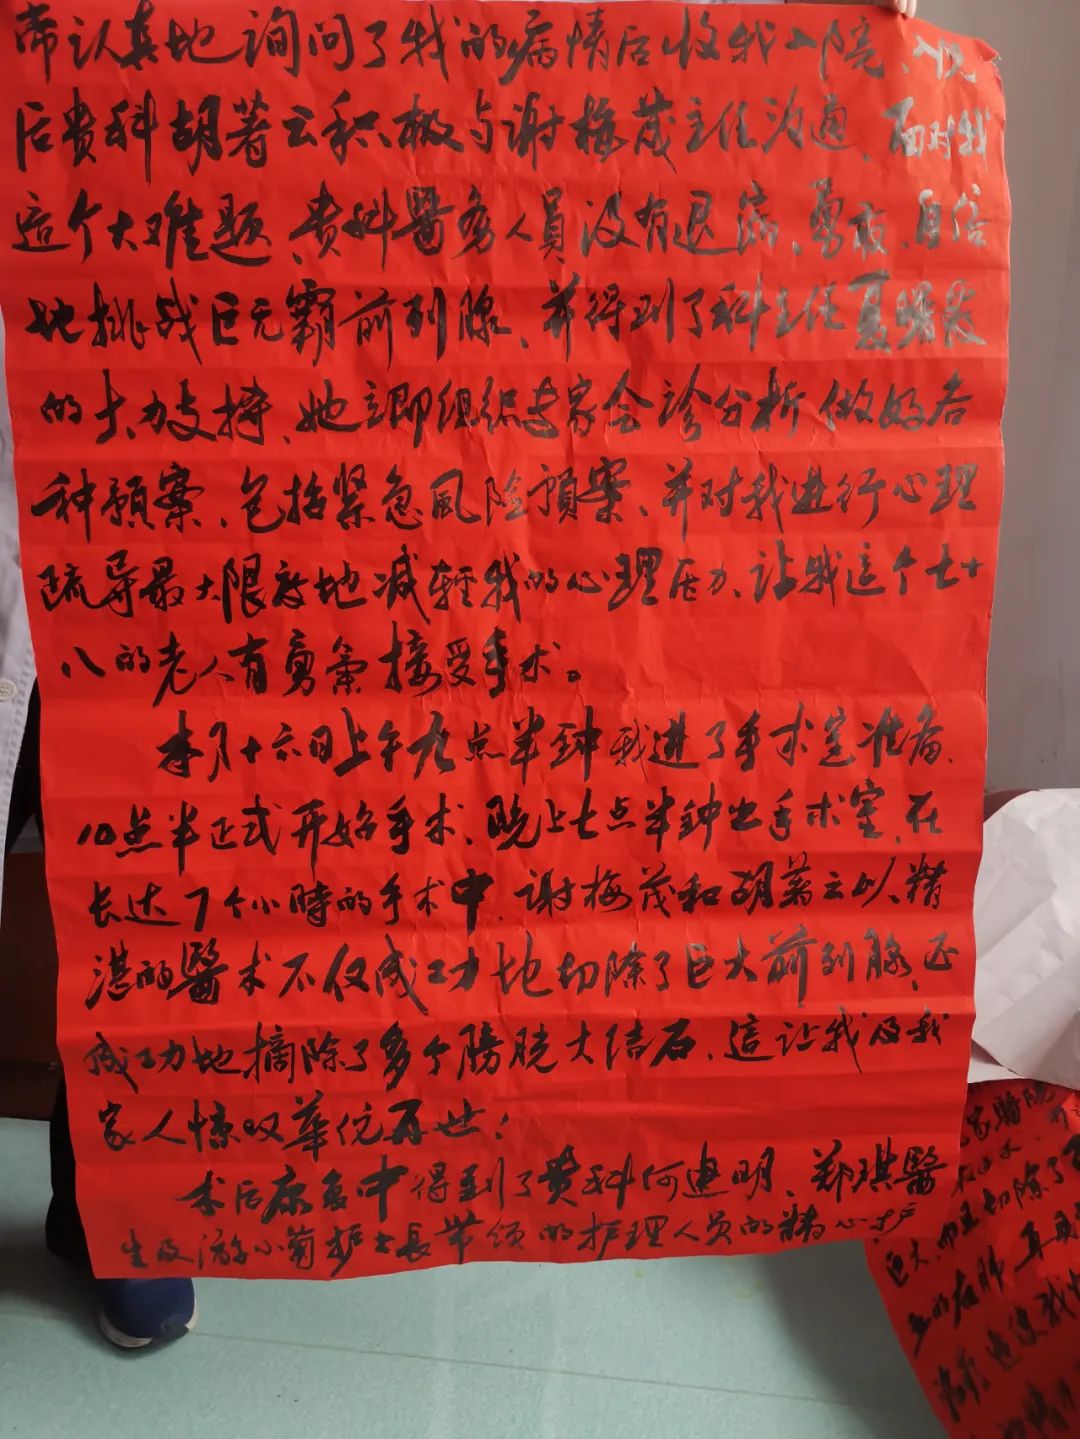 常认真地询问了我的病情后收我入院、入院
后贵科胡著云积极与谢梅茂主任沟通、面对我
這个大难题、贵科醫务人員没有退, 自信
地挑战巨无霸前列腺、并得到了科主任夏
的大力支持、她立即组织专家会诊分析做好各
种預案、包括紧急風险預案、并对我进行心理
疏导最大限度地减輕我的心理压力、让我這个七十
八的老人有勇氣接受手术。
本月十六日上午九点半鈡我進了手术室准备、
10点半正式开始手术、晚上七点半鈡出手术室、在
长达7个小時的手术中、谢梅茂和胡著云以精
湛的醫术不仅成功地切除了巨大前列腺、还
成功地摘除了多个膀胱大结石、這让我及我
家人惊叹華佗再世!
术后康复中得到了贵科何建明、郑琪醫
生及游小菊护士長带领的护理人员的精心护
家
切除了
巨大